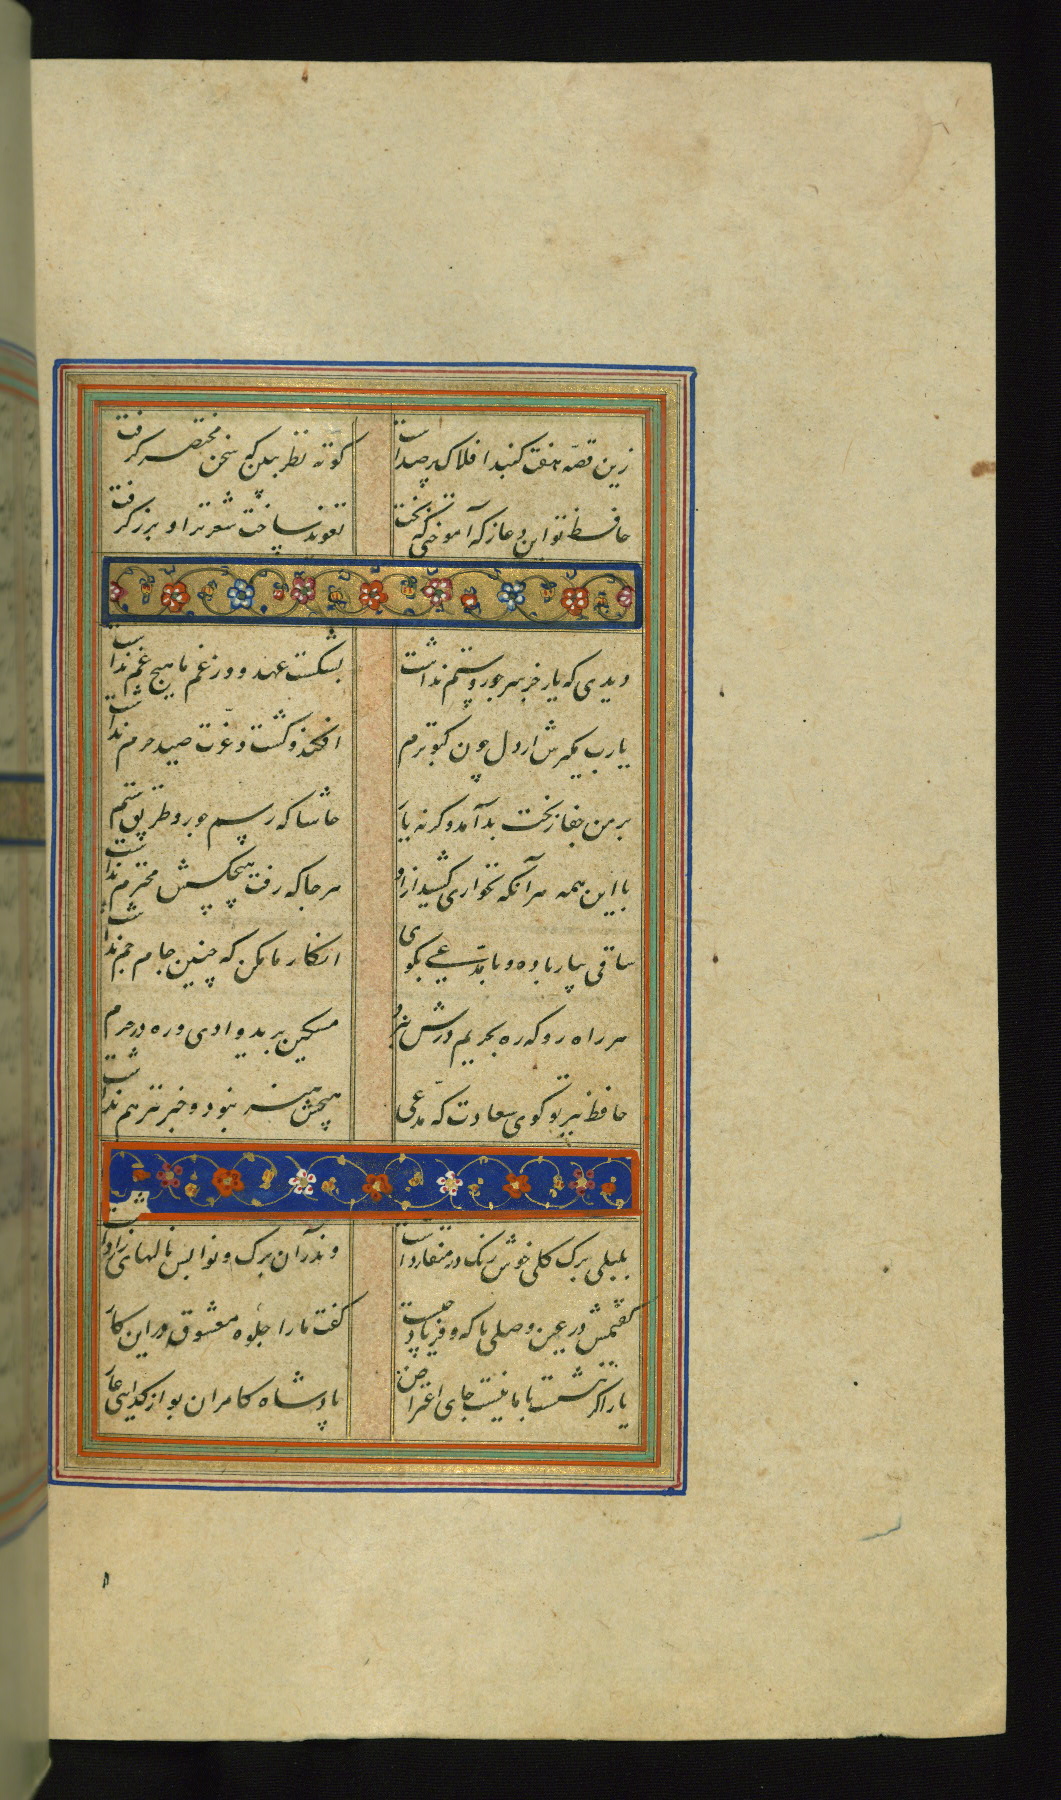 زین قصه هفت گنبد افلاک پر صداست کوته نظر ببین که سخن مختصر گرفت
حافظ تو این دعا ز که آموختی که بخت تعویذ ساخت شعر ترا و بزر گرفت
دیدی که یار جز سر جور و ستم نداشت بشکست عهد و وز غم ما هیچ غم نداشت
یارب مگیرش ار دل چون کبوترم افکند و کشت و عزت صید حرم نداشت
بر من جفا ز بخت بد آمد وگرنه یار حاشا که رسم جور و طریق ستم
با این همه هر آنکه نه خواری کشید از او هر جا که رفت هیچکسش محترم نداشت
ساقی بیار باده و با مدعی بگوی انکار ما مکن که چنین جام جم نداشت
هر راه رو که ره بحریم درش نبرد مسکین برید وادی و ره در حرم نداشت
حافظ ببر تو گوی سعادت که مدعی هیچش هنر نبود و خبر نیز هم نداشت
بلبلی برگ گلی خوش رنگ در منقار داشت وندر آن برگ و نوا بس نالهای زار داشت
گفتمش در عین وصل این ناله و فریاد چیست گفت ما را جلوه معشوق در این کار
یار اگر ننشست با ما نیست جای اعتراض پادشاه کامران بود از گدایی عار